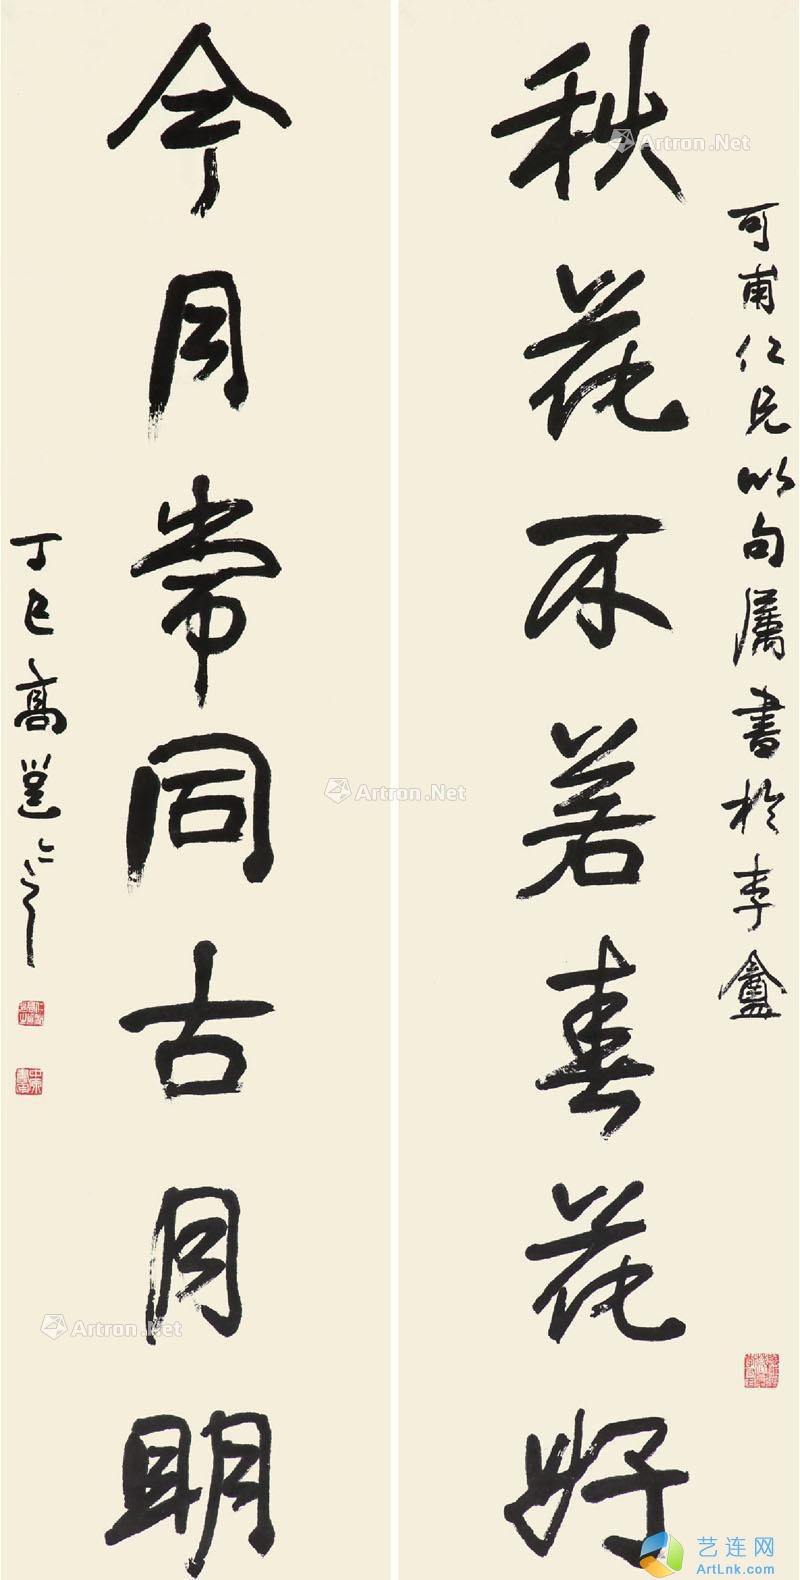 秋花不若春花好
可甫仁兄以句屬書於李盦
今月常同古月明
丁巳高邕
Artron.Net
Artron.Net
Artron.Net
艺连网
ArtLnk.com